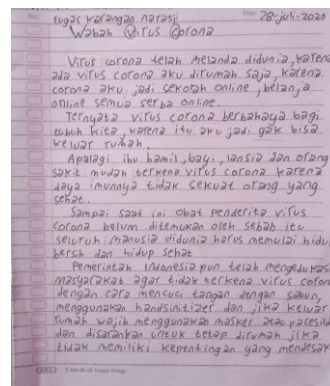 No:
Date: 28-juli-2020
tugas karangan narasi
Wabah Virus Corona
Virus corona telah melanda didunia, karena
ada virus corona aku dirumah saja, karena
corona aku jadi sekolah online, belanja
online semua serba online.
Ternyata virus corona berbahaya bagi
tubuh kita, karena itu aku jadi gak bisa
keluar rumah.
Apalagi ibu hamil, bayi, lansia dan orang
sakit mudah terkena virus corona karena
daya imunnya tidak sekuat orang yang
sehat.
Sampai saat ini obat penderita virus
corona belum ditemukan oleh sebab itu
seluruh manusia didunia harus memulai hidu
bersih dan hidup sehat
Pemerintah indonesia pun telah mengedukasi
masyarakat agar tidak terkena virus corona
dengan cara mencuci tangan dengan sabun,
menggunakan handsinitizer dan jika keluar
rumah wajib menggunakan masker atau
dan disarankan untuk tetap dirumah jika
tidak memiliki kepentingan yang mendesak